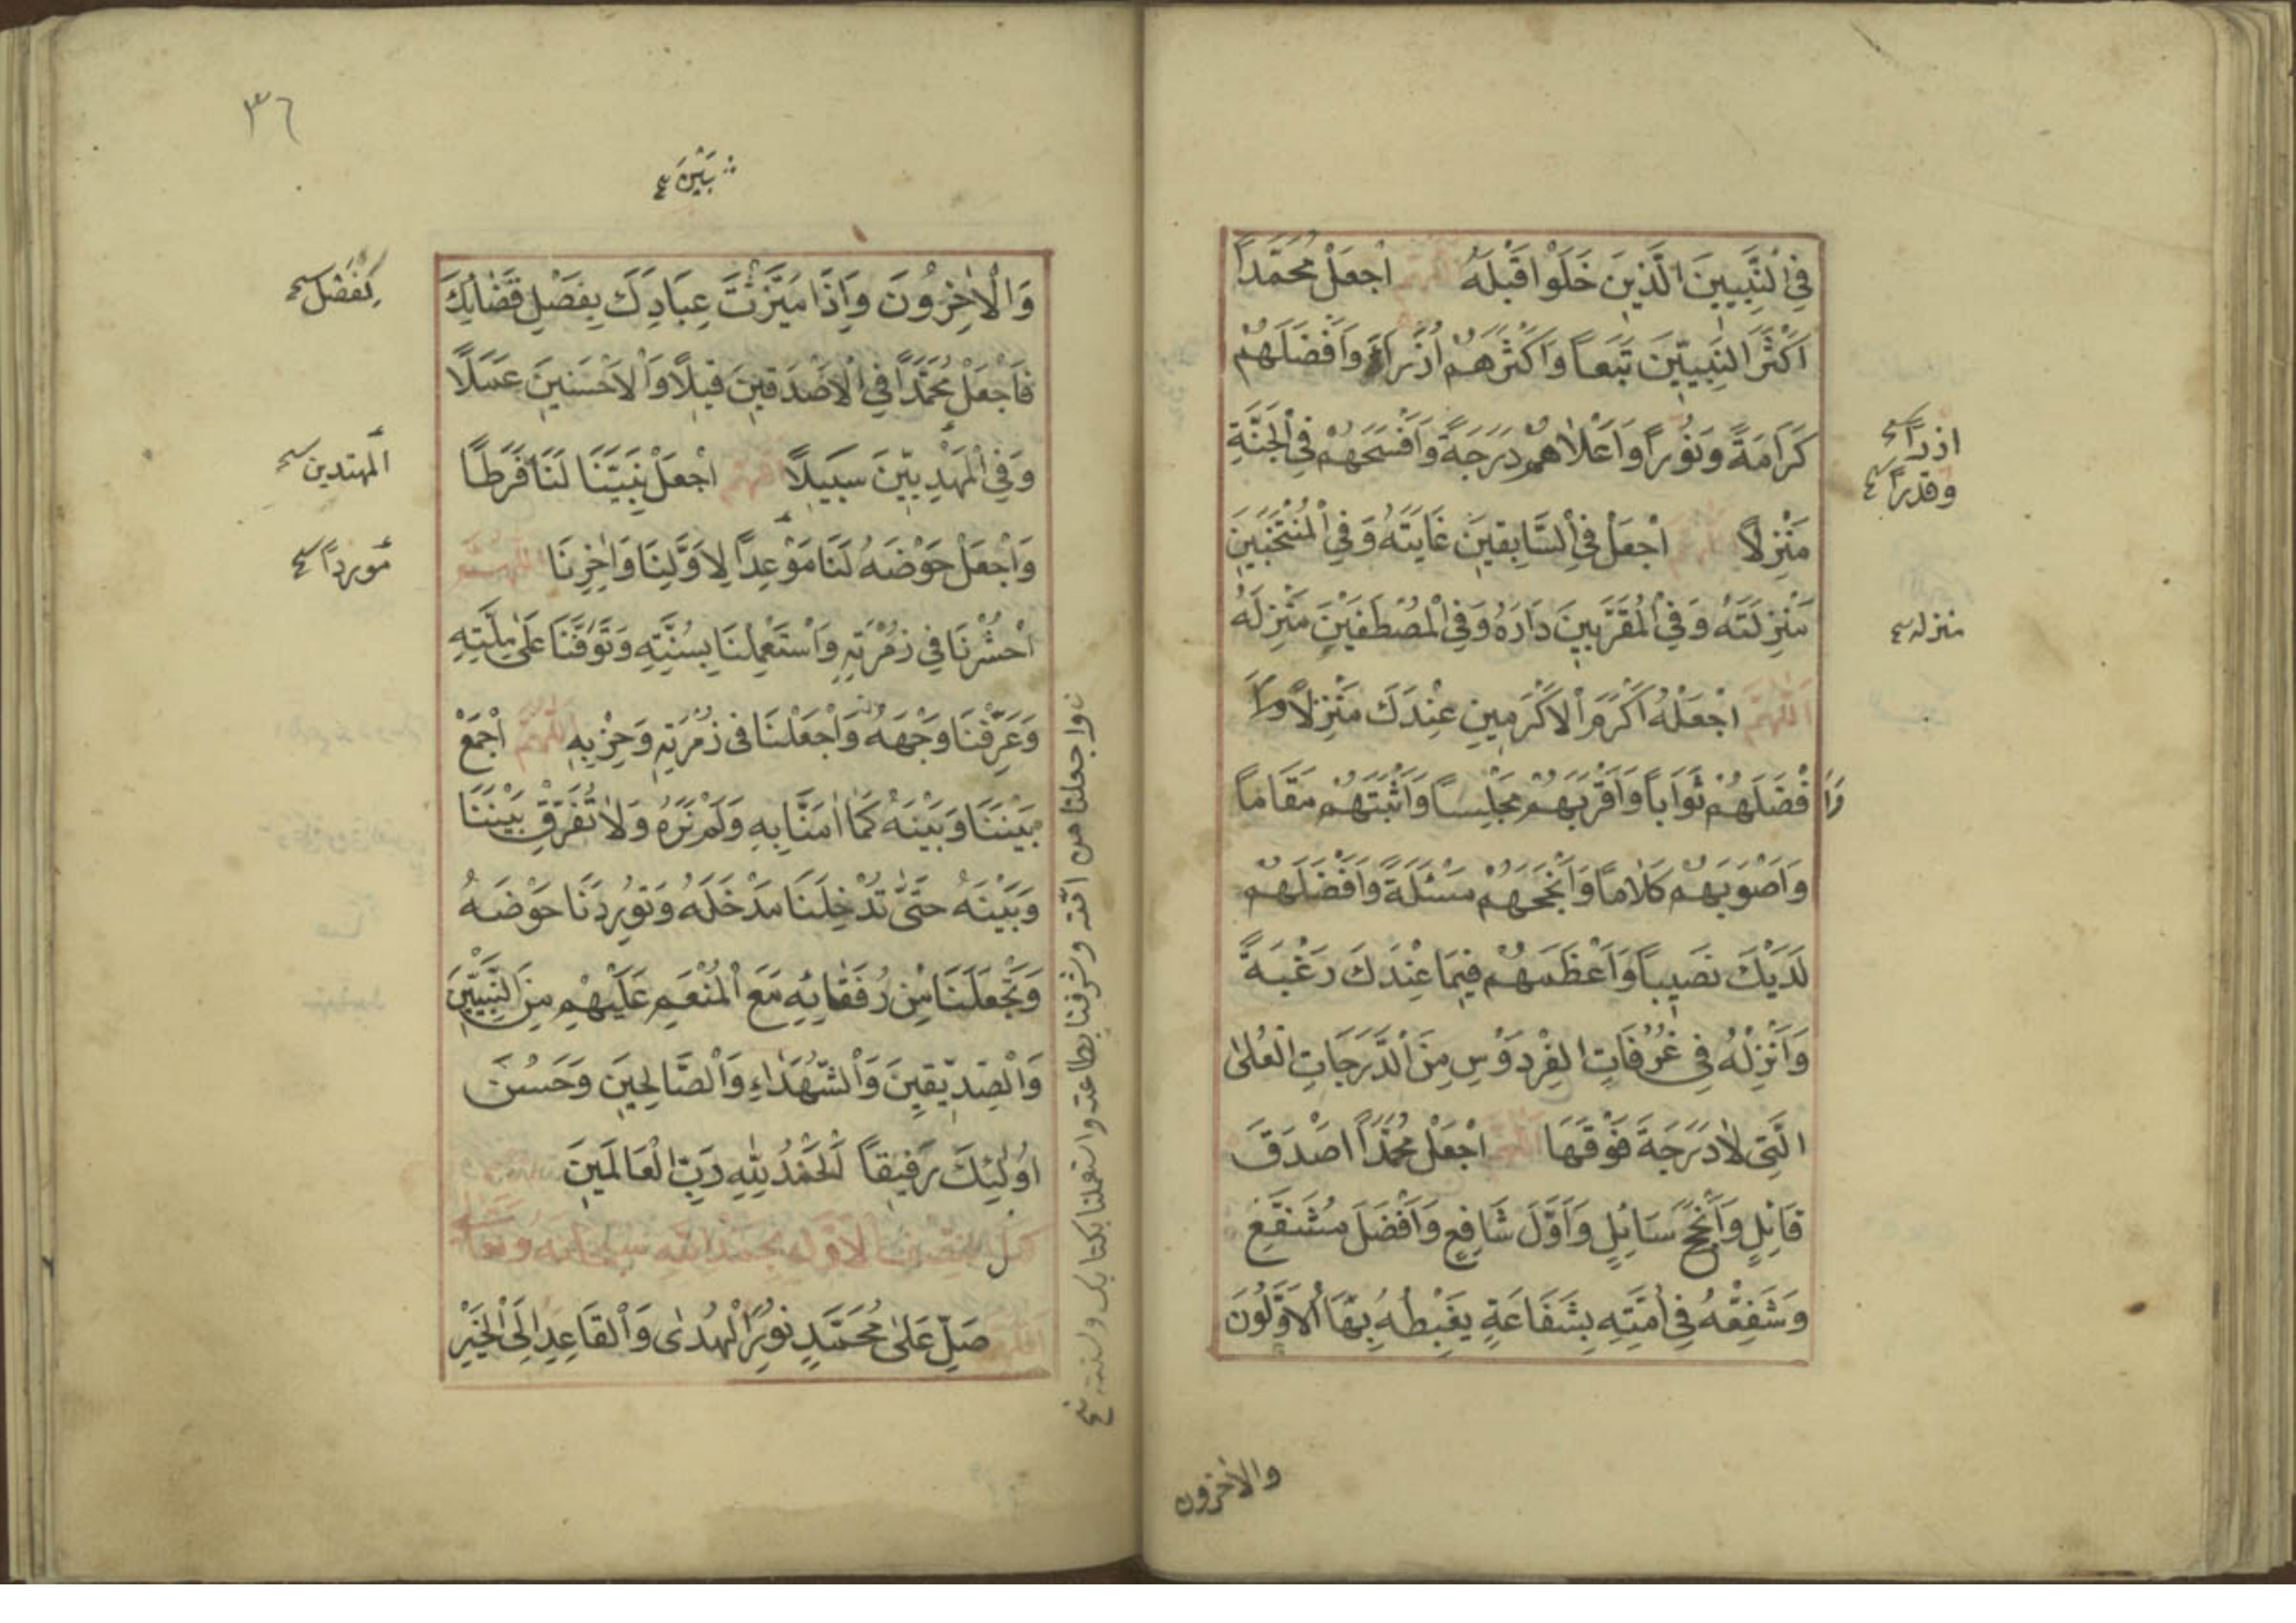 فِي النَّبِيِّينَ الَّذِينَ خَلَوْا قَبْلَهُ اللَّهُمَّ اجْعَلْ مُحَمَّداً
اَكْثَرَ النَّبِيِّينَ تَبَعاً وَاَكْثَرَهُمْ اُزَرَاءَ وَاَفْضَلَهُمْ
كَرَامَةً وَنُوراً وَاَعْلَاهُمْ دَرَجَةً وَاَفْسَحَهُمْ فِي الْجَنَّةِ
اذراً
وقدراً
مَنْزِلاً اللَّهُمَّ اجْعَلْ فِي السَّابِقِينَ غَايَتَهُ وَفِي الْمُنْتَخَبِينَ
مَنْزِلَتَهُ وَفِي الْمُقَرَّبِينَ دَارَهُ وَفِي الْمُصْطَفَيْنَ مَنْزِلَهُ
منزله
اَللَّهُمَّ اجْعَلْهُ اَكْرَمَ الْاَكْرَمِينَ عِنْدَكَ مَنْزِلاً
وَاَفْضَلَهُمْ ثَوَاباً وَاَقْرَبَهُمْ مَجْلِساً وَاَثْبَتَهُمْ مَقَاماً
وَاَصْوَبَهُمْ كَلَاماً وَاَنْجَحَهُمْ مَسْئَلَةً وَاَفْضَلَهُمْ
لَدَيْكَ نَصِيباً وَاَعْظَمَهُمْ فِيمَا عِنْدَكَ رَغْبَةً
وَاَنْزِلْهُ فِي غُرُفَاتِ الْفِرْدَوْسِ مِنَ الدَّرَجَاتِ الْعُلٰى
الَّتِي لَا دَرَجَةَ فَوْقَهَا اللَّهُمَّ اجْعَلْ مُحَمَّداً اَصْدَقَ
قَائِلٍ وَاَنْجَحَ سَائِلٍ وَاَوَّلَ شَافِعٍ وَاَفْضَلَ مُشَفَّعٍ
وَشَفِّعْهُ فِي اُمَّتِهِ بِشَفَاعَةٍ يَغْبِطُهُ بِهَا الْاَوَّلُونَ
والاخرون
٣٦
بَيْنَ
وَالْاٰخِرُونَ وَاِذَا مَيَّزْتَ عِبَادَكَ بِفَصْلِ قَضَائِكَ
لفصل
فَاجْعَلْ مُحَمَّداً فِي الْاَصْدَقِينَ قِيلاً وَالْاَحْسَنِينَ عَمَلاً
وَفِي الْمَهْدِيِّينَ سَبِيلاً اللَّهُمَّ اجْعَلْ نَبِيَّنَا لَنَا فَرَطاً
المهتدين
وَاجْعَلْ حَوْضَهُ لَنَا مَوْعِداً لِاَوَّلِنَا وَاٰخِرِنَا اللَّهُمَّ
مورداً
احْشُرْنَا فِي زُمْرَتِهِ وَاسْتَعْمِلْنَا بِسُنَّتِهِ وَتَوَفَّنَا عَلٰى مِلَّتِهِ
وَعَرِّفْنَا وَجْهَهُ وَاجْعَلْنَا فِي زُمْرَتِهِ وَحِزْبِهِ اللَّهُمَّ اجْمَعْ
بَيْنَنَا وَبَيْنَهُ كَمَا اٰمَنَّا بِهِ وَلَمْ نَرَهُ وَلَا تُفَرِّقْ بَيْنَنَا
وَبَيْنَهُ حَتّٰى تُدْخِلَنَا مَدْخَلَهُ وَتُورِدَنَا حَوْضَهُ
وَتَجْعَلَنَا مِنْ رُفَقَائِهِ مَعَ الْمُنْعَمِ عَلَيْهِمْ مِنَ النَّبِيِّينَ
وَالصِّدِّيقِينَ وَالشُّهَدَاءِ وَالصَّالِحِينَ وَحَسُنَ
اُولٰئِكَ رَفِيقاً اَلْحَمْدُ لِلّٰهِ رَبِّ الْعَالَمِينَ
كمل النصف الاول بحمد الله سبحانه وتعالى
اللّهُمَّ صَلِّ عَلٰى مُحَمَّدٍ نُورِ الْهُدٰى وَالْقَاعِدِ اِلَى الْخَيْرِ
واجعلنا من امته وشرفنا بطاعته واستعملنا بكتابك وسنته